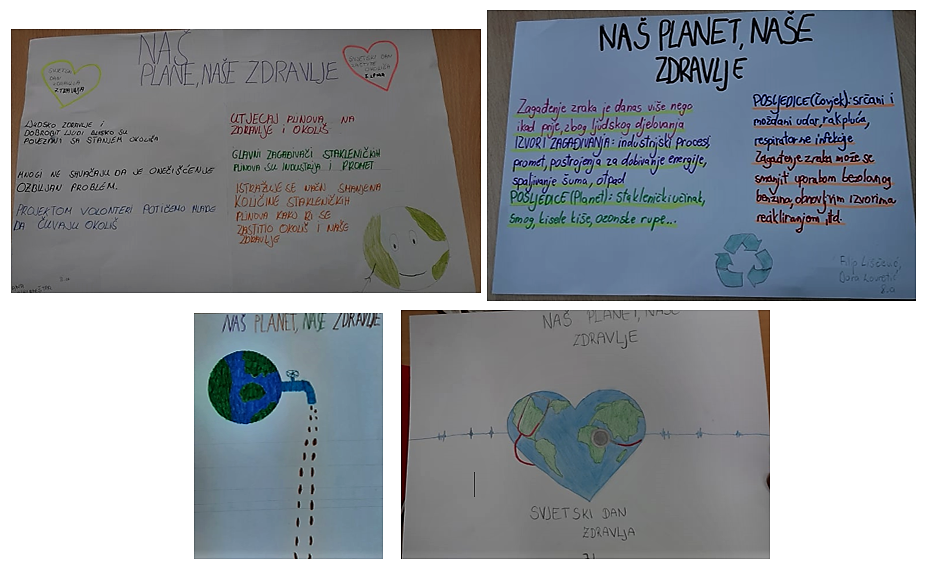 NAŠ
PLANE, NAŠE ZDRAVLJE
SVJETSKI
DAN
ZDRAVLJA
7. TRAVNJA
SVJETSKI DAN
ZAŠTITE
OKOLIŠA
5. LIPNJA
LJUDSKO ZDRAVLJE I
DOBROBIT LJUDI BLISKO SU
POVEZANI SA STANJEM OKOLIŠA
MNOGI NE SHVAĆAJU DA JE ONEČIŠĆENJE
OZBILJAN PROBLEM.
PROJEKTOM VOLONTERI POTIČEMO MLADE
DA ČUVAJU OKOLIŠ
UTJECAJ PLINOVA, NA
ZDRAVLJE I OKOLIŠ
GLAVNI ZAGAĐIVAČI STAKLENIČKIH
PLINOVA SU INDUSTRIJA I PROMET
ISTRAŽUJE SE NAČIN SMANJENJA
KOLIČINE STAKLENIČKIH
PLINOVA KAKO BI SE
ZAŠTITIO OKOLIŠ I NAŠE
ZDRAVLJE
NAŠ PLANET, NAŠE
ZDRAVLJE
Zagađenje zraka je danas više nego
ikad prije, zbog ljudskog djelovanja
IZVORI ZAGAĐIVANJA: industrijski procesi,
promet, postrojenja za dobivanje energije,
spaljivanje šuma, otpad
POSLJEDICE (Planet): staklenički učinak,
smog, kisele kiše, ozonske rupe...
POSLJEDICE (Čovjek): srčani i
moždani udar, rak pluća,
respiratorne infekcije
Zagađenje zraka može se
smanjit uporabom bezolovnog
benzina, obnovljivim izvorima
recikliranjem, itd.
Filip
Dora
8.a
NAŠ PLANET, NAŠE ZDRAVLJE
NAŠ PLANET, NAŠE
ZDRAVLJE
SVJETSKI DAN
ZDRAVLJA